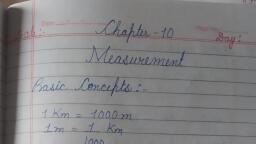 Chapter-10
Day:
Measurement
Basic Concepts:-
1 Km = 1000 m
1 m = 1 Km
1000